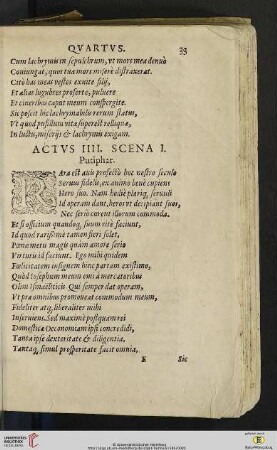 QVARTVS. 33
Cum lachrymis in sepulchrum, vt mors mea denuò
Coniungat, quos tua mors miserè distraxerat.
Citò has meas vestes exuite filij,
Et alias lugubres proferte, puluere
Et cineribus caput meum conspergite.
Sic poscit hic lachrymabilis rerum status,
Vt quod posthum vitæ superest reliquæ,
In luctu, miserijs & lachrymis exigam.
ACTVS IIII. SCENA I.
Putiphar.
RAra est auis profectò hoc nostro seculo
Seruus fidelis, ex animo benè cupiens
Hero suo. Nam hodiè plæriq; seruuli
Id operam dant, heros vt decipiant suos,
Nec seriò curent illorum commoda.
Et si officium quandoq; suum ritè faciunt,
Id quod rarissimè tamen fieri solet,
Pœnæ metu magis quàm amore serio
Virtutis id faciunt. Ego mihi quidem
Fœlicitatem insignem hinc partam existimo,
Quòd Iosephum meum emi à mercatoribus
Olim Ismaëliticis. Qui semper dat operam,
Vt præ omnibus promoueat commodum meum,
Fideliter atq; liberaliter mihi
Inseruiens. Sed maximè postquam rei
Domesticæ Oeconomiam ipsi concredidi,
Tanta ipse dexteritate & diligentia,
Tantaq; simul prosperitate facit omnia,
E Sic